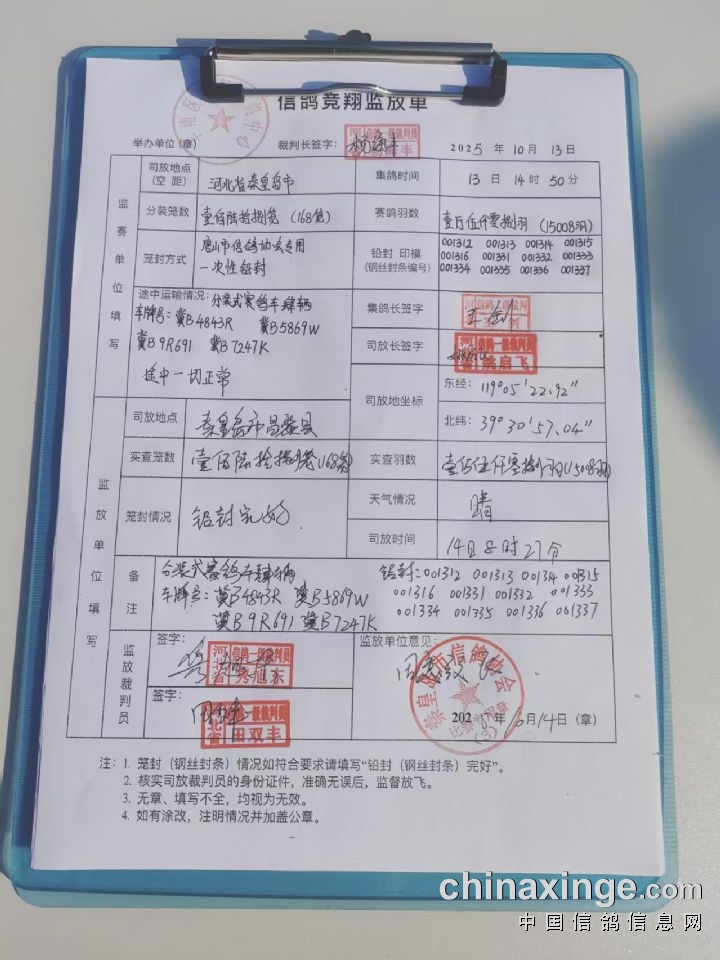 信鸽竞翔监放单
举办单位(章) 裁判长签字: 2025 年 10 月 13 日
监赛单位填写
司放地点(空 距) 河北省秦皇岛市 集鸽时间 13 日 14 时 50 分
分装笼数 壹佰陆拾捌笼 (168笼) 赛鸽羽数 壹万伍仟零捌羽 (15008羽)
笼封方式 唐山市信鸽协会专用 一次性铅封
铅封 印模 (钢丝封条编号) 001312 001313 001314 001315
001316 001331 001332 001333
001334 001335 001336 001337
途中运输情况: 分装式赛鸽车肆辆
车牌号: 冀B4843R 冀B5869W
冀B9R691 冀B7247K
途中一切正常
集鸽长签字
司放长签字 河北省 信鸽一级裁判员
司放地坐标 东经: 119°05'22.92"
北纬: 39°30'57.04"
监放单位填写
司放地点 秦皇岛市昌黎县
实查笼数 壹佰陆拾捌笼(168笼) 实查羽数
笼封情况 铅封完好 天气情况 晴
司放时间 14日8时27分
备注 分装式赛鸽车肆辆 铅封: 001312 001313 001314 001315
车牌号: 冀B4843R 冀B5869W 001316 001331 001332 001333
冀B9R691 冀B7247K 001334 001335 001336 001337
监放裁判员
签字: 河北省 信鸽一级裁判员
签字: 田双丰
监放单位意见: 同意放飞
秦皇岛市信鸽协会 比赛专用章 (3)
2025年10月14日 (章)
注: 1. 笼封(钢丝封条)情况如符合要求请填写“铅封(钢丝封条)完好”。
2. 核实司放裁判员的身份证件,准确无误后,监督放飞。
3. 无章、填写不全,均视为无效。
4. 如有涂改,注明情况并加盖公章。
chinaxinge.com
中国信鸽信息网